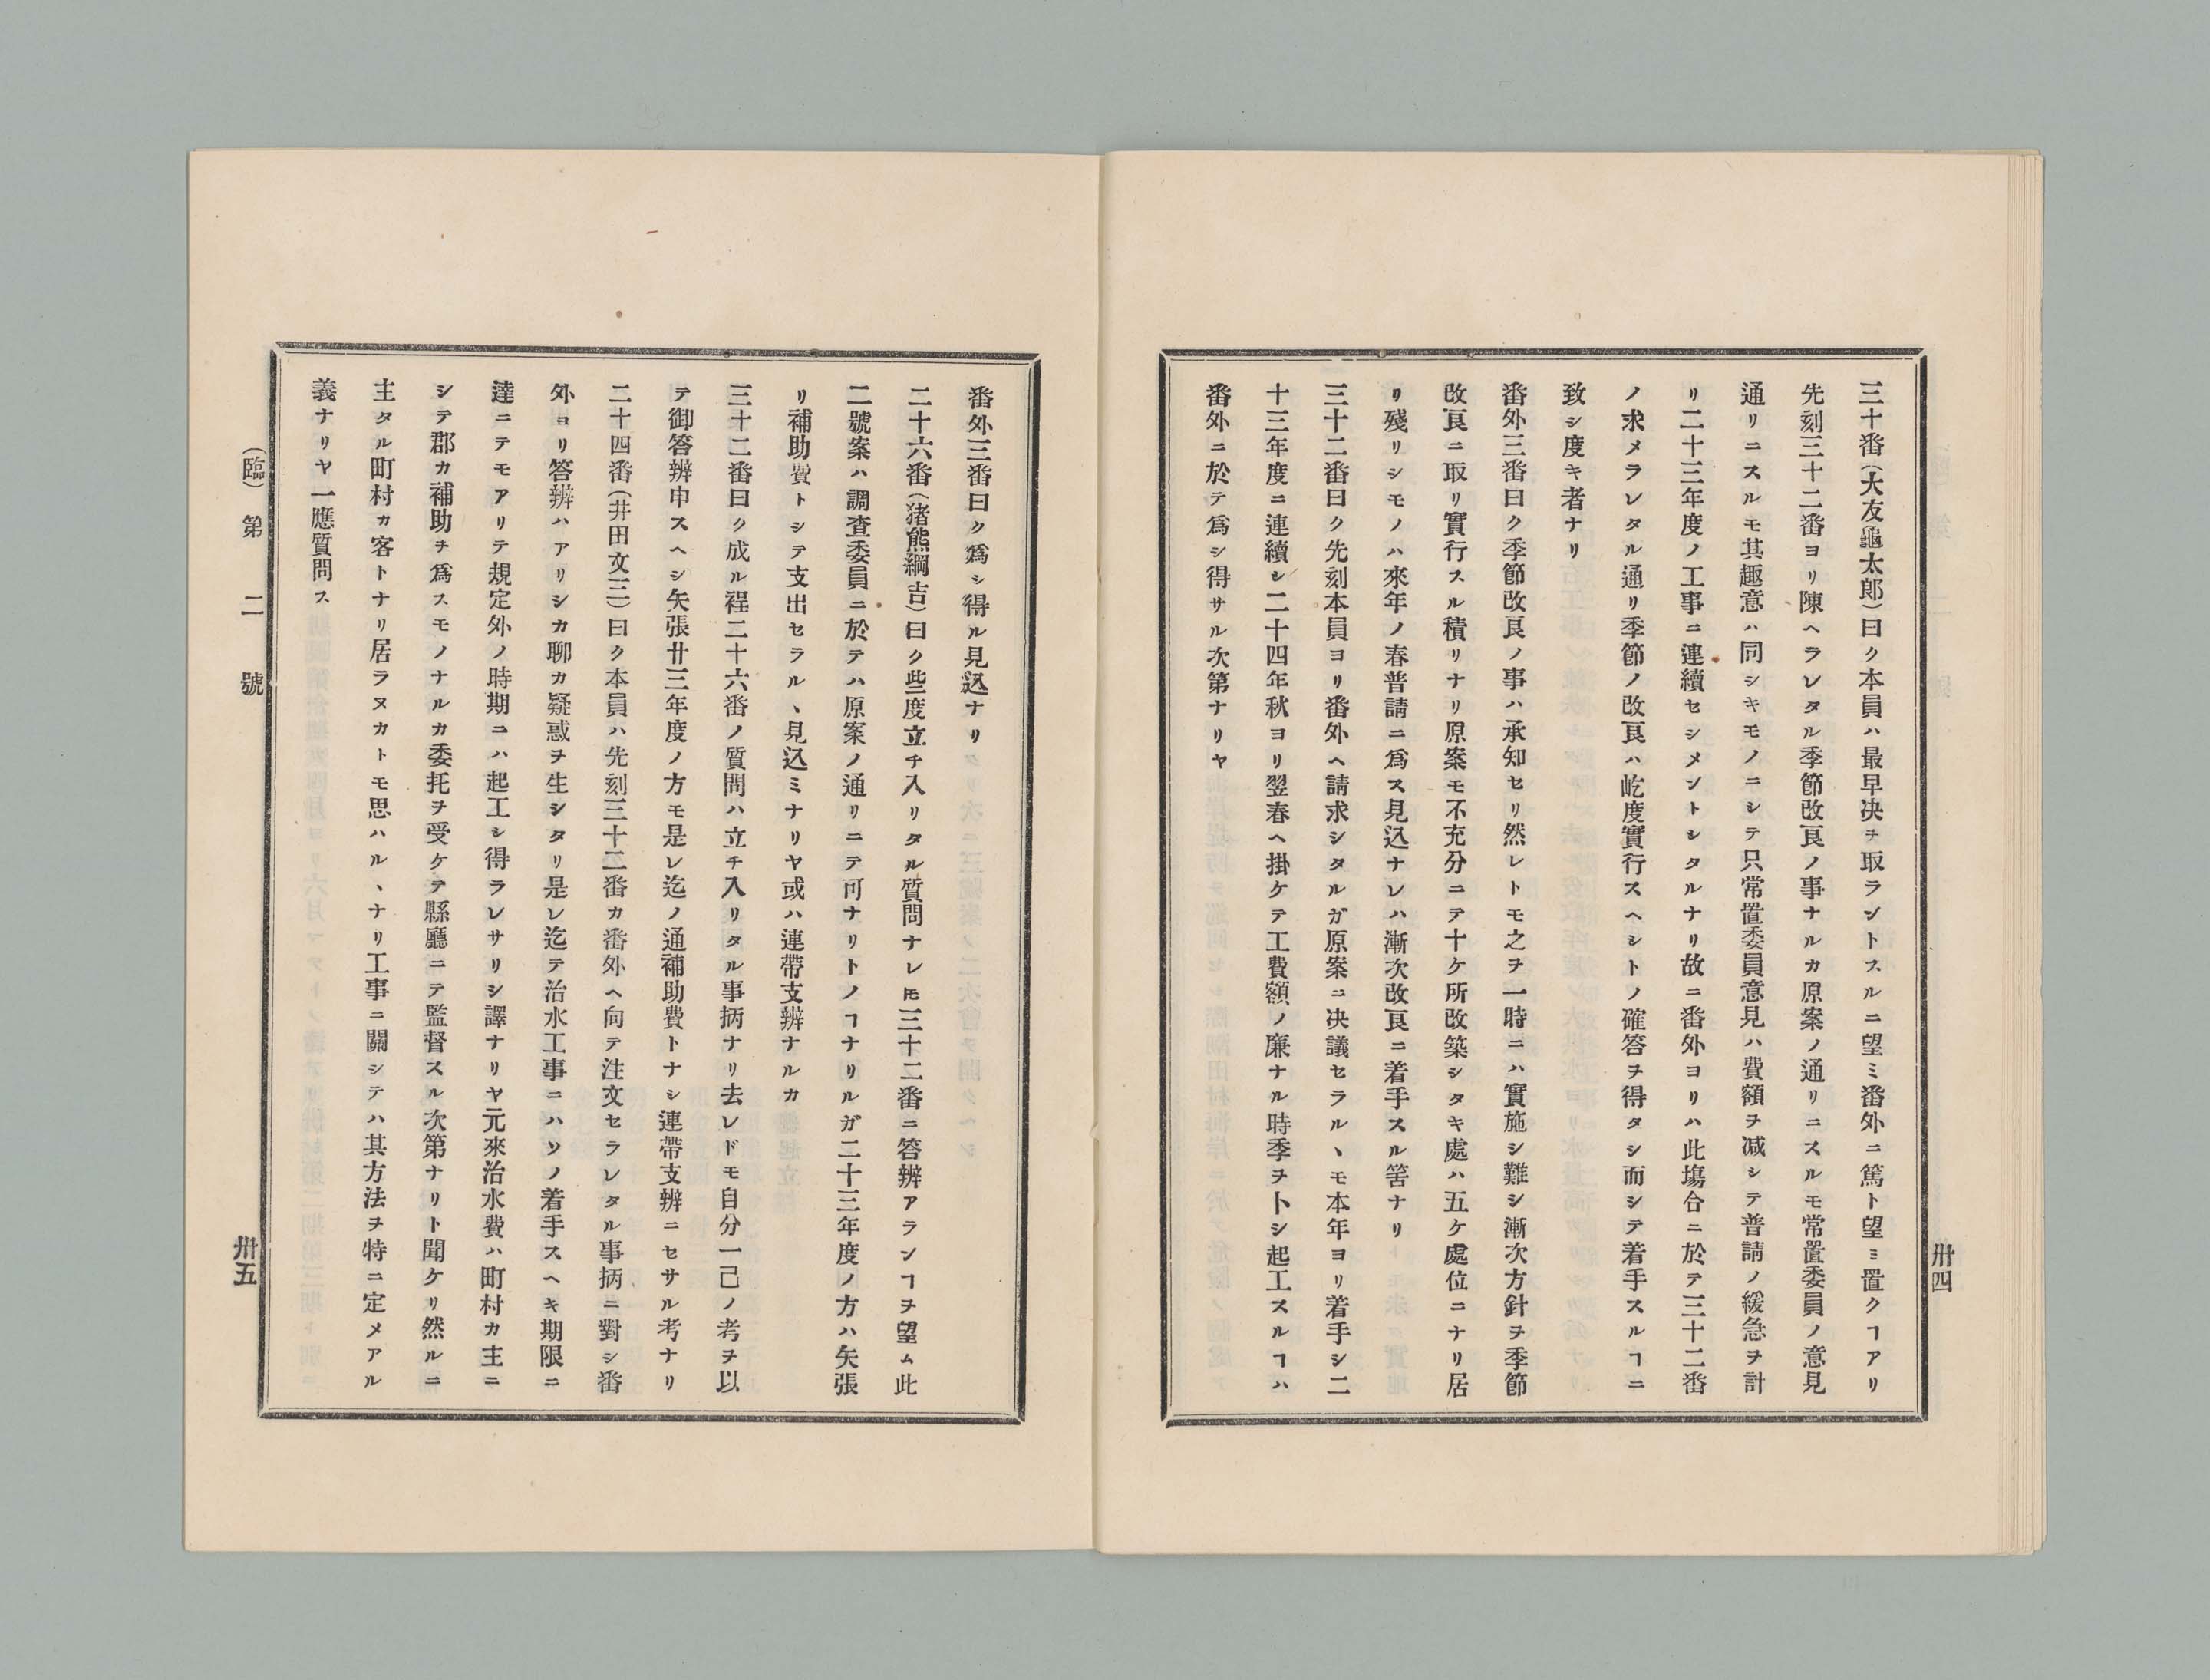 三十番（大友龜太郎）曰ク本員ハ最早决ヲ取ラントスルニ望ミ番外ニ篤ト望ミ置クヿアリ
先刻三十二番ヨリ陳ヘラレタル季節改良ノ事ナルカ原案ノ通リニスルモ常置委員ノ意見
通リニスルモ其趣意ハ同シキモノニシテ只常置委員意見ハ費額ヲ减シテ普請ノ緩急ヲ計
リ二十三年度ノ工事ニ連續セシメントシタルナリ故ニ番外ヨリハ此塲合ニ於テ三十二番
ノ求メラレタル通リ季節ノ改良ハ屹度實行スヘシトノ確答ヲ得タシ而シテ着手スルヿニ
致シ度キ者ナリ
番外三番曰ク季節改良ノ事ハ承知セリ然レトモ之ヲ一時ニハ實施シ難シ漸次方針ヲ季節
改良ニ取リ實行スル積リナリ原案モ不充分ニテ十ケ所改築シタキ處ハ五ケ處位ニナリ居
リ殘リシモノハ來年ノ春普請ニ爲ス見込ナレハ漸次改良ニ着手スル筈ナリ
三十二番曰ク先刻本員ヨリ番外ヘ請求シタルガ原案ニ决議セラルヽモ本年ヨリ着手シ二
十三年度ニ連續シ二十四年秋ヨリ翌春ヘ掛ケテ工費額ノ廉ナル時季ヲトシ起工スルヿハ
番外ニ於テ爲シ得サル次第ナリヤ
卅四
番外三番曰ク爲シ得ル見込ナリ
二十六番（猪熊綱吉）曰ク些度立チ入リタル質問ナレ𪜈三十二番ニ答辨アランヿヲ望ム此
二號案ハ調査委員ニ於テハ原案ノ通リニテ可ナリトノヿナリルガ二十三年度ノ方ハ矢張
リ補助費トシテ支出セラルヽ見込ミナリヤ或ハ連帶支辨ナルカ
三十二番曰ク成ル程二十六番ノ質問ハ立チ入リタル事抦ナリ去レドモ自分一己ノ考ヲ以
テ御答辨申スヘシ矢張廿三年度ノ方モ是レ迄ノ通補助費トナシ連帶支辨ニセサル考ナリ
二十四番（井田文三）曰ク本員ハ先刻三十二番カ番外ヘ向テ注文セラレタル事抦ニ對シ番
外ヨリ答辨ハアリシカ聊カ疑惑ヲ生シタリ是レ迄テ治水工事ニハソノ着手スヘキ期限ニ
達ニテモアリテ規定外ノ時期ニハ起工シ得ラレサリシ譯ナリヤ元來治水費ハ町村カ主ニ
シテ郡カ補助ヲ爲スモノナルカ委托ヲ受ケテ縣廳ニテ監督スル次第ナリト聞ケリ然ルニ
主タル町村カ客トナリ居ラヌカトモ思ハルヽナリ工事ニ關シテハ其方法ヲ特ニ定メアル
義ナリヤ一應質問ス
（臨）第二號
卅五